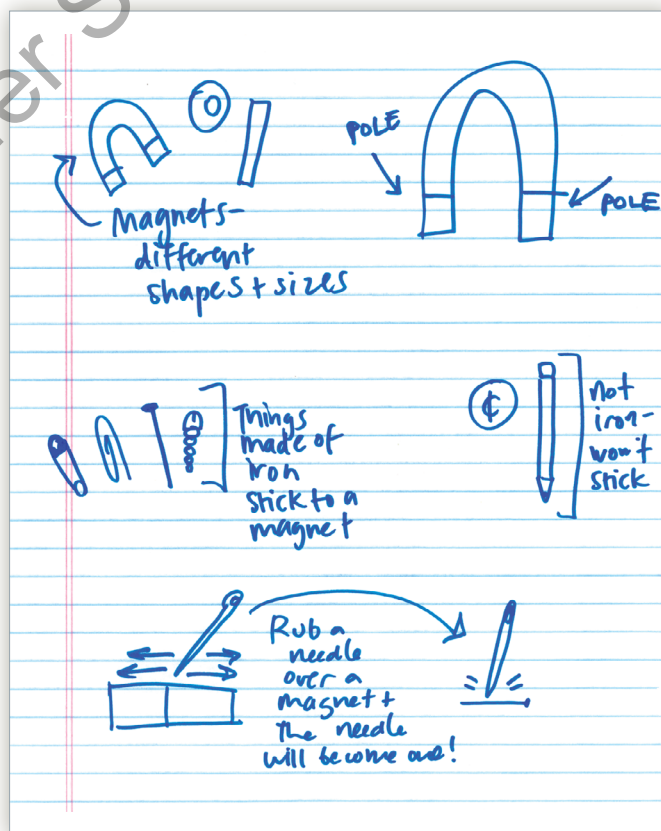 er S
POLE
POLE
Magnets-
different
shapes + sizes
Things
made of
iron
stick to a
magnet
¢
not
iron-
won't
stick
Rub a
needle
over a
magnet +
the needle
will become one!